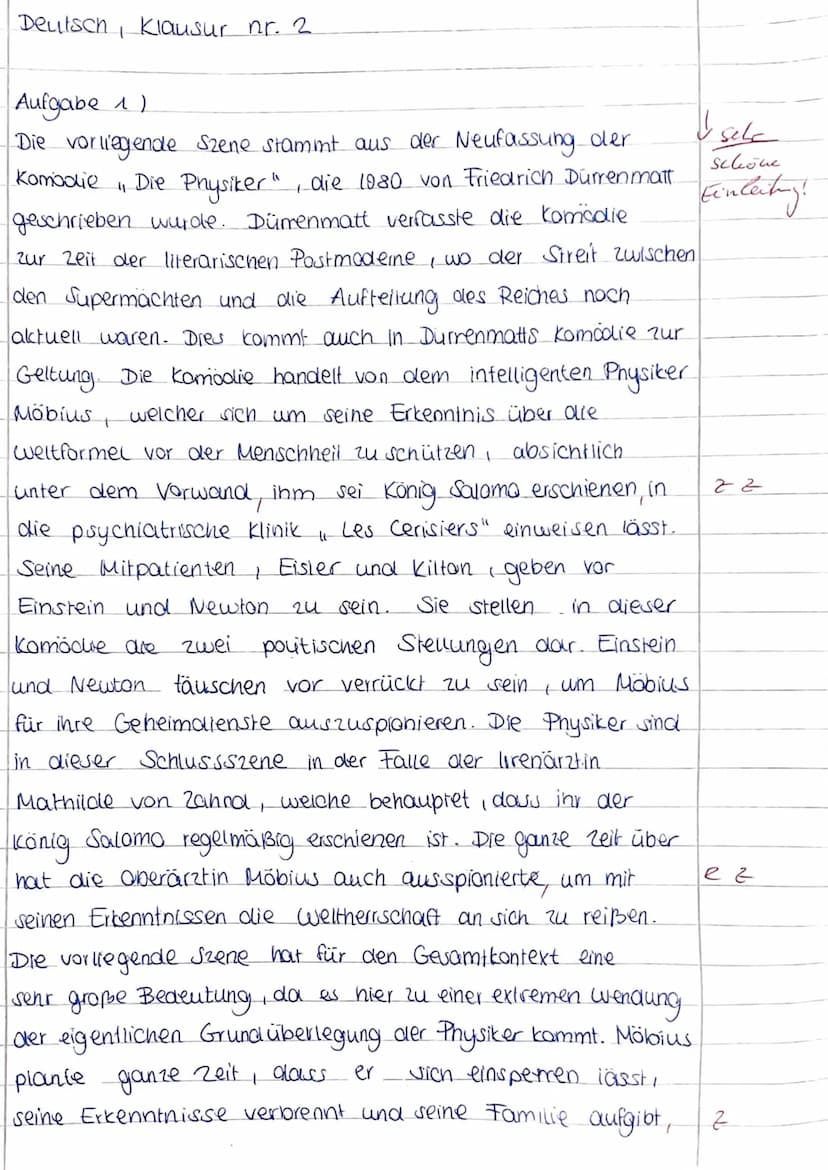 Deutsch, Klausur nr. 2
Aufgabe 1)
Die vorliegende Szene stammt aus der Neufassung der
Komödie „Die Physiker“, die 1980 von Friedrich Dürrenmatt
geschrieben wurde. Dürrenmatt verfasste die Komödie
zur Zeit der literarischen Postmoderne, wo der Streit zwischen
den Supermächten und die Aufteilung des Reiches noch
aktuell waren. Dies kommt auch in Dürrenmatts Komödie zur
Geltung. Die Komödie handelt von dem intelligenten Physiker
Möbius, welcher sich um seine Erkenntnis über die
Weltformel vor der Menschheit zu schützen, absichtlich
unter dem Vorwand, ihm sei König Salomo erschienen, in
die psychiatrische Klinik „Les Cerisiers“ einweisen lässt.
Seine Mitpatienten, Eisler und Kilton, geben vor
Einstein und Newton zu sein. Sie stellen in dieser
Komödie die zwei politischen Stellungen dar. Einstein
und Newton täuschen vor verrückt zu sein, um Möbius
für ihre Geheimdienste auszuspionieren. Die Physiker sind
in dieser Schlussszene in der Falle der Irrenärztin
Mathilde von Zahnd, welche behauptet, dass ihr der
König Salomo regelmäßig erschienen ist. Die ganze Zeit über
hat die Oberärztin Möbius auch ausspionierte, um mit
seinen Erkenntnissen die Weltherrschaft an sich zu reißen.
Die vorliegende Szene hat für den Gesamtkontext eine
sehr große Bedeutung, da es hier zu einer extremen Wendung
der eigentlichen Grundüberlegung der Physiker kommt. Möbius
plante ganze Zeit, dass er sich einsperren lässt,
seine Erkenntnisse verbrennt und seine Familie aufgibt,
↓ sehr
schöne
Einleitung!
z z
e z
z